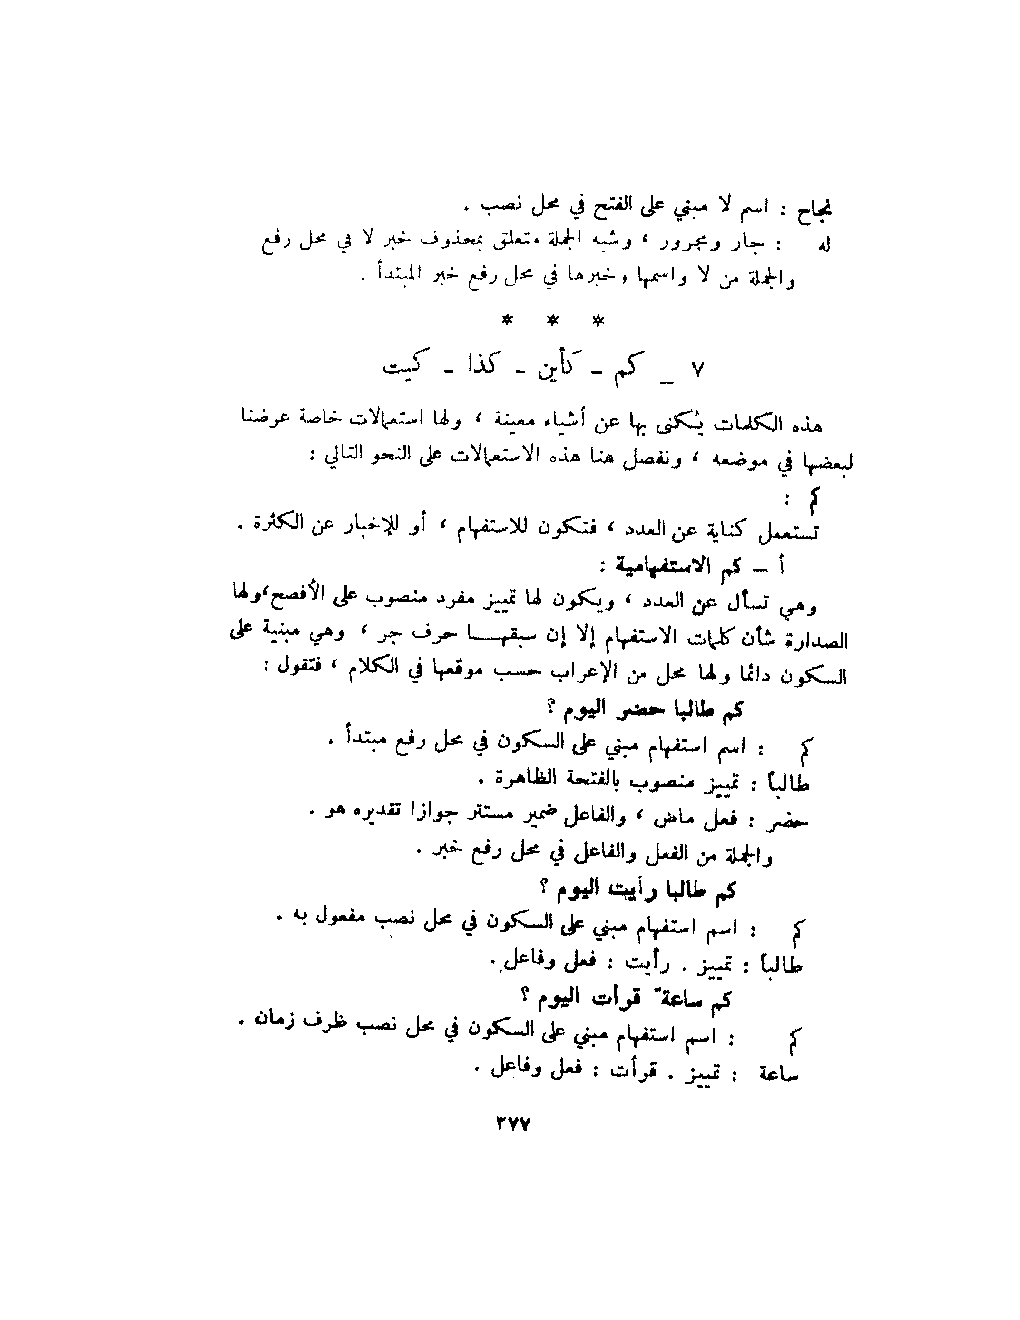 نجاح : اسم لا مبني على الفتح في محل نصب .
له : جار ومجرور ، وشبه الجملة متعلق بمحذوف خبر لا في محل رفع
والجملة من لا واسمها وخبرها في محل رفع خبر المبتدأ .
* * *
٧ _ كم - كأين - كذا - كيت
هذه الكلمات يُكنى بها عن أشياء معينة ، ولها استعمالات خاصة عرضنا
لبعضها في موضعه ، ونفصل هنا هذه الاستعمالات على النحو التالي :
كم :
تستعمل كناية عن العدد ، فتكون للاستفهام ، أو للإخبار عن الكثرة .
أ – كم الاستفهامية :
وهي تسأل عن العدد ، ويكون لها تمييز مفرد منصوب على الأفصح،ولها
الصدارة شأن كلمات الاستفهام إلا إن سبقهـــا حرف جر ، وهي مبنية على
السكون دائما ولها محل من الإعراب حسب موقعها في الكلام ، فتقول :
كم طالبا حضر اليوم ؟
كم : اسم استفهام مبني على السكون في محل رفع مبتدأ .
طالباً : تمييز منصوب بالفتحة الظاهرة .
حضر : فعل ماض ، والفاعل ضمير مستتر جوازا تقديره هو .
والجملة من الفعل والفاعل في محل رفع خبر .
كم طالبا رأيت اليوم ؟
كم : اسم استفهام مبني على السكون في محل نصب مفعول به .
طالباً : تمييز . رأيت : فعل وفاعل .
كم ساعة ً قرأت اليوم ؟
كم : اسم استفهام مبني على السكون في محل نصب ظرف زمان .
ساعة : تمييز . قرأت : فعل وفاعل .
٣٧٧